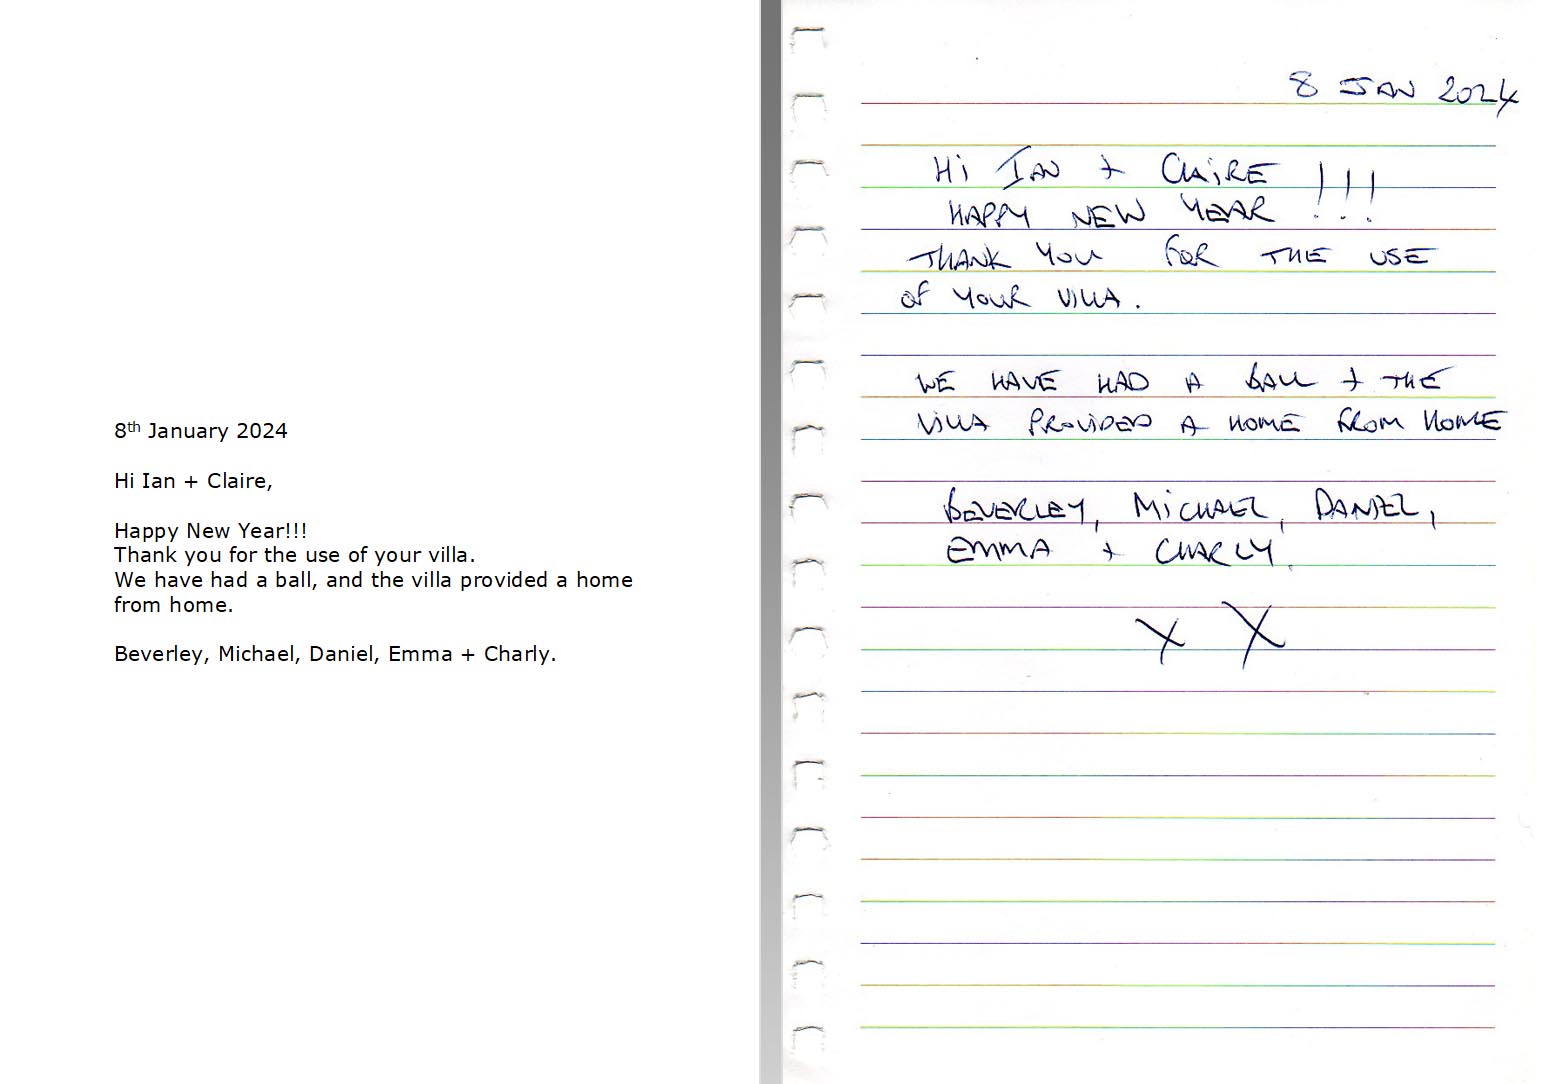 8th January 2024
Hi Ian + Claire,
Happy New Year!!!
Thank you for the use of your villa.
We have had a ball, and the villa provided a home
from home.
Beverley, Michael, Daniel, Emma + Charly.
8 JAN 2024
Hi IAN + CLAiRE !!!
HAPPY NEW YEAR !!!
THANK YOU FOR THE USE
OF YOUR VILLA.
WE HAVE HAD A BALL + THE
ViLLA PROViDED A HOME FROM HOME
BEVERLEY, MiCHAEL, DANIEL,
EMMA + CHARLY.
X X